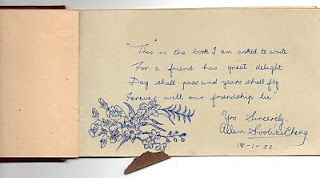 "This is the book I am asked to write
For a friend has great delight
Day shall pass and years shall fly
Forever will our friendship lie"
Yrs Sincerely
Allen
18-1-52.